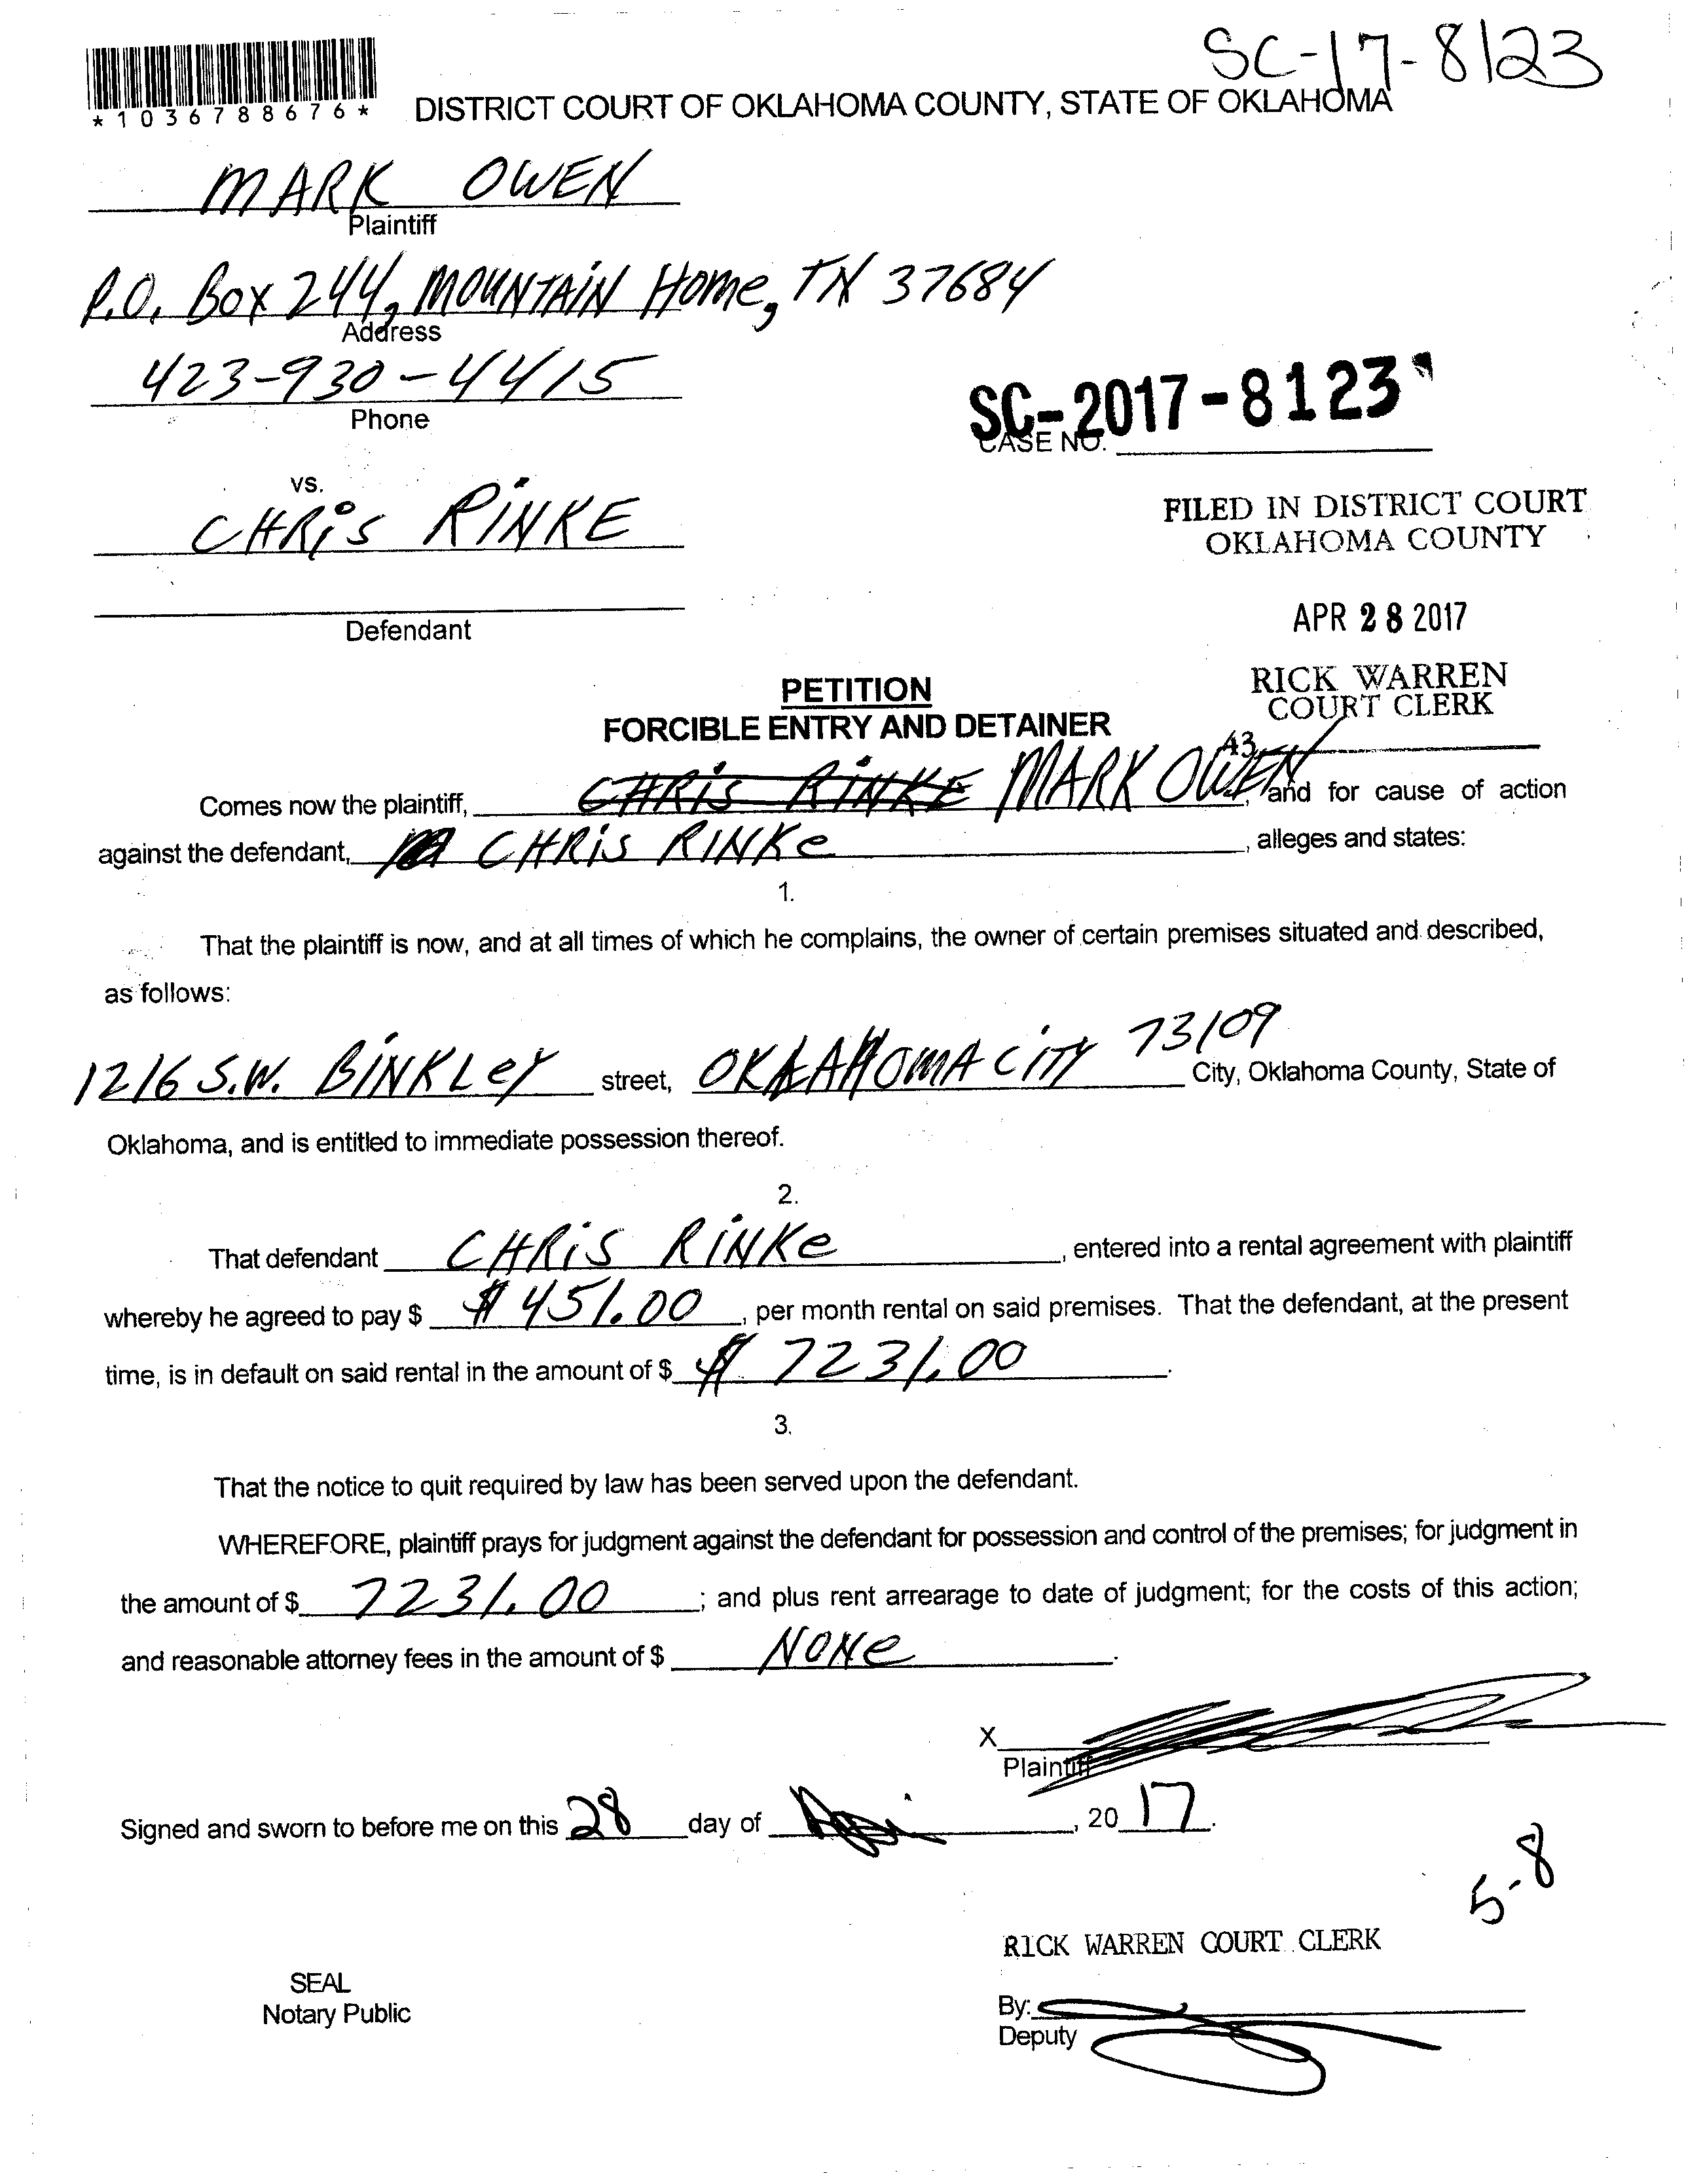 SC-17-8123
*1036788676*
DISTRICT COURT OF OKLAHOMA COUNTY, STATE OF OKLAHOMA
MARK OWEN
Plaintiff
P.O. Box 244, MOUNTAIN Home, TN 37684
Address
423-930-4415
Phone
SC-2017-8123
CASE NO.
vs.
CHRiS RiNKE
FILED IN DISTRICT COURT
OKLAHOMA COUNTY
Defendant
APR 28 2017
RICK WARREN
COURT CLERK
43
PETITION
FORCIBLE ENTRY AND DETAINER
Comes now the plaintiff, CHRiS RiNKE MARK OWEN, and for cause of action
against the defendant, CHRiS RINKe, alleges and states:
1.
That the plaintiff is now, and at all times of which he complains, the owner of certain premises situated and described,
as follows:
1216 S.W. BiNKLey street, OKLAHOMA CiTy 73109 City, Oklahoma County, State of
Oklahoma, and is entitled to immediate possession thereof.
2.
That defendant CHRiS RiNKe, entered into a rental agreement with plaintiff
whereby he agreed to pay $ $451.00, per month rental on said premises. That the defendant, at the present
time, is in default on said rental in the amount of $ $ 7231.00.
3.
That the notice to quit required by law has been served upon the defendant.
WHEREFORE, plaintiff prays for judgment against the defendant for possession and control of the premises; for judgment in
the amount of $ 7231.00; and plus rent arrearage to date of judgment; for the costs of this action;
and reasonable attorney fees in the amount of $ NONe.
X
Plaintiff
Signed and sworn to before me on this 28 day of , 20 17.
5-8
RICK WARREN COURT CLERK
SEAL
Notary Public
By:
Deputy